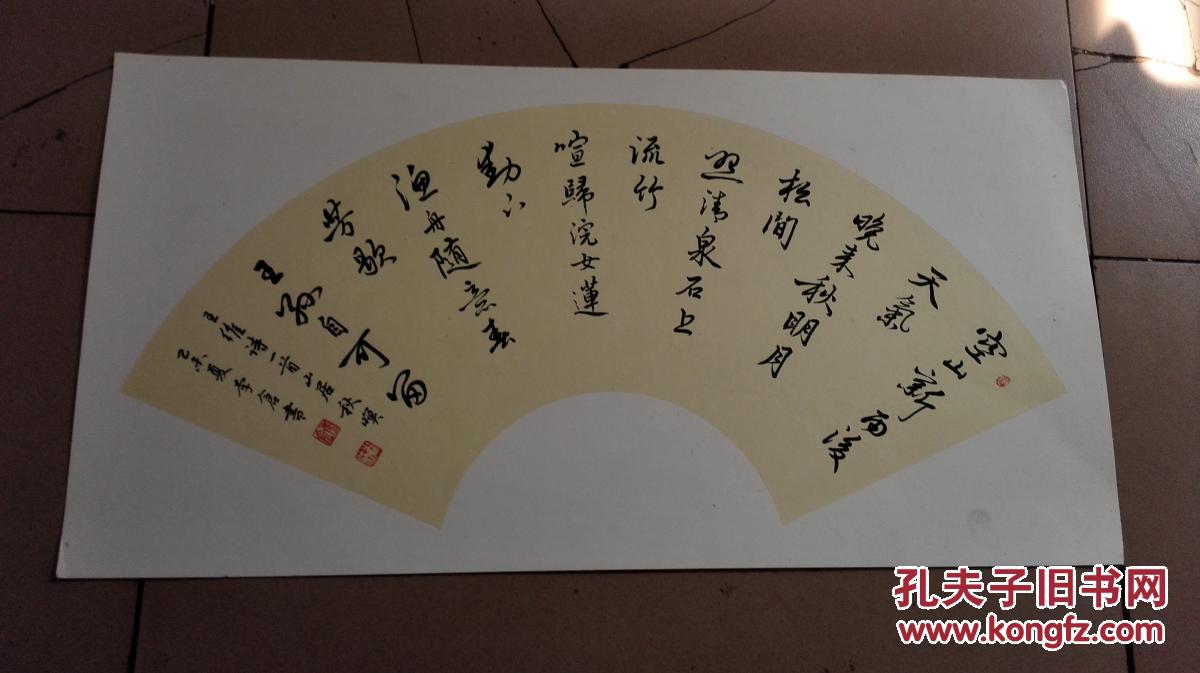 空山新雨後
天氣
晚来秋明月
松間
照清泉石上
流竹
喧歸浣女蓮
動下
渔舟随意春
芳歇
王孫自可留
王维诗一首山居秋暝
乙未夏李倉書
孔夫子旧书网
www.kongfz.com